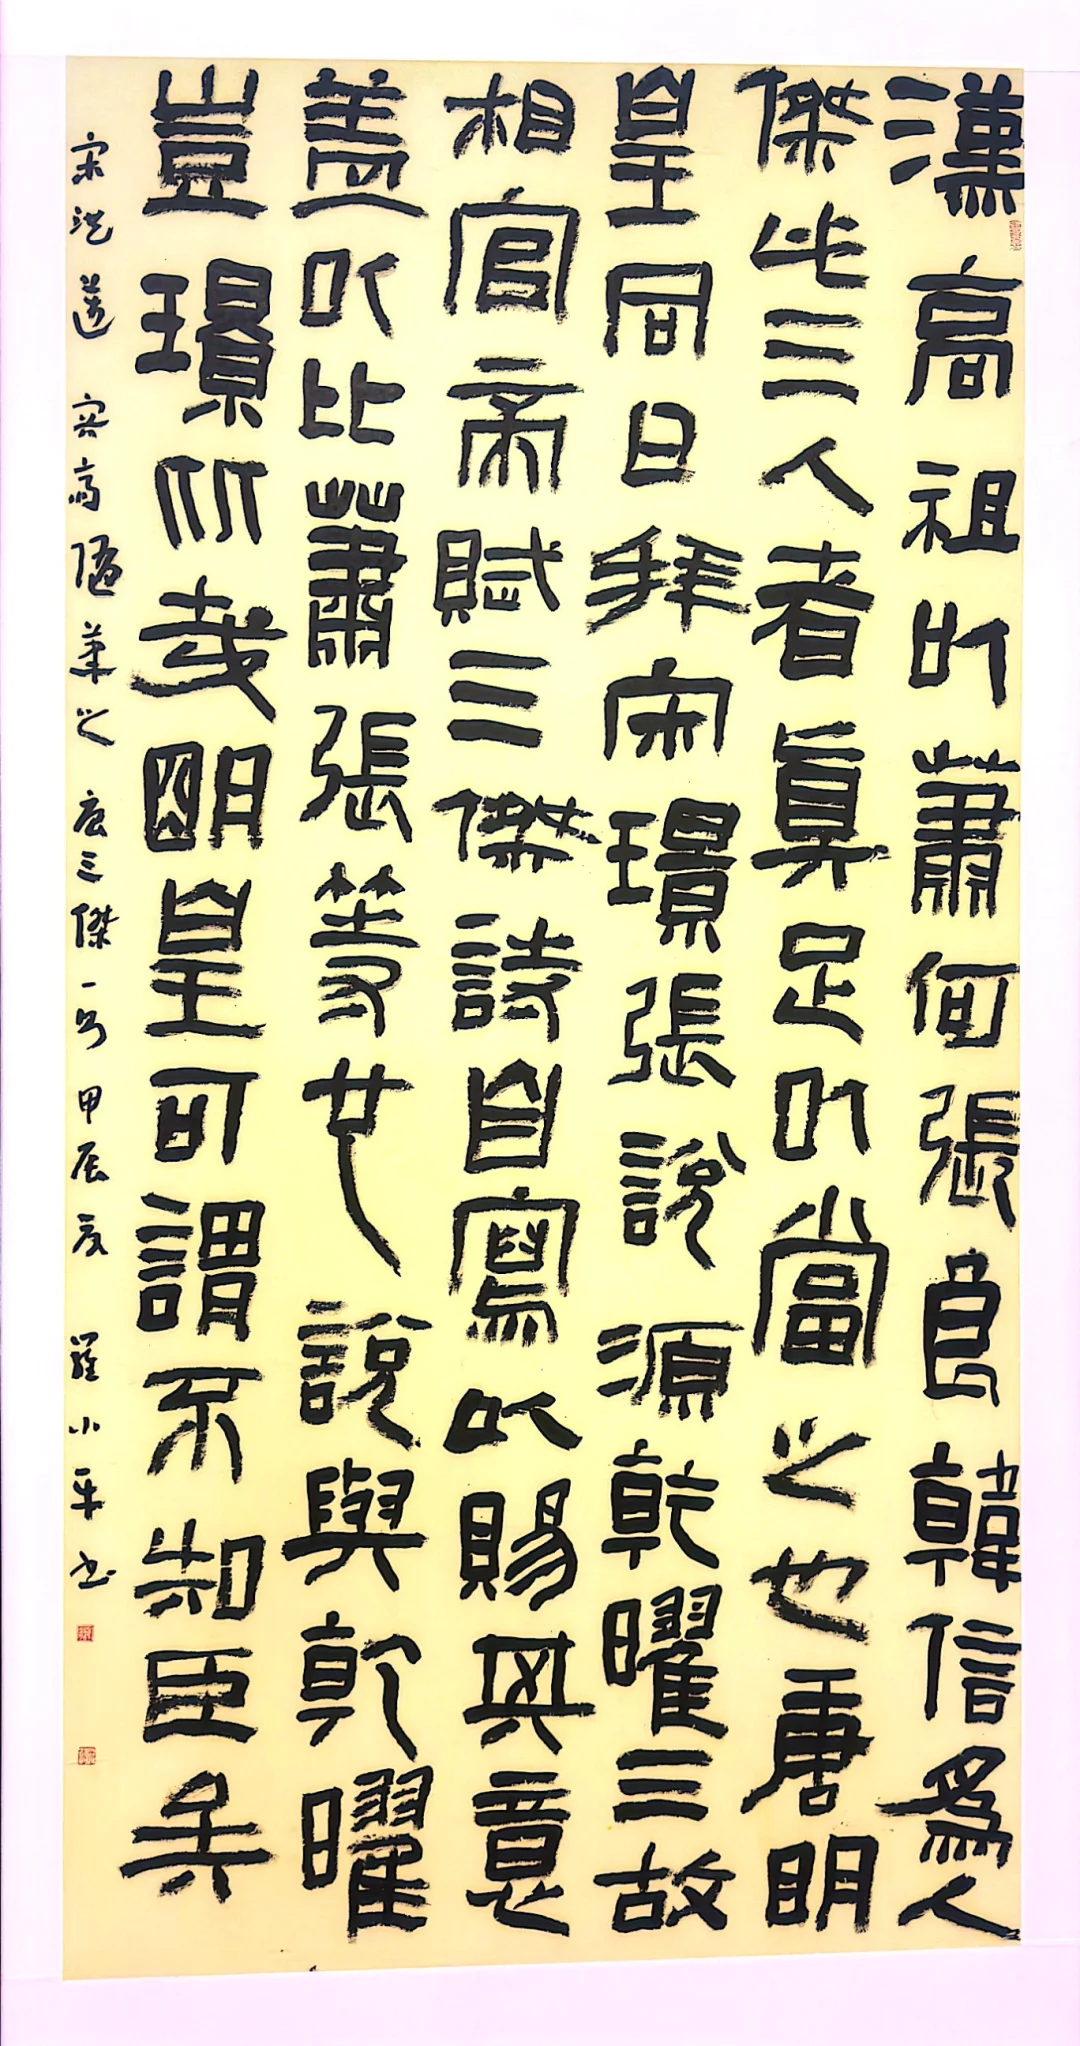 漢高祖以蕭何張良韓信爲人
傑此三人者眞足以當之也唐明
皇同日拜宋璟張說源乾曜三故
相官帝賦三傑詩自寫以賜其意
盖以比蕭張等也說與乾曜
豈璟比哉明皇可謂不知臣矣
宋洪邁 容齋隨筆之 唐三傑一則 甲辰夏 羅小平書